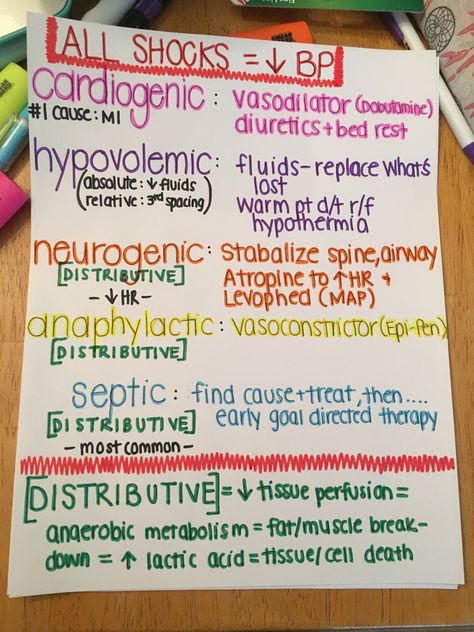 ALL SHOCKS = ↓ BP
cardiogenic : vasodilator (Dobutamine)
#1 cause: MI
diuretics + bed rest
hypovolemic : fluids - replace what's
lost
(absolute: ↓ fluids
relative: 3rd spacing)
warm pt d/t r/f
hypothermia
neurogenic : Stabalize spine, airway
[DISTRIBUTIVE]
- ↓HR -
Atropine to ↑ HR +
Levophed (MAP)
anaphylactic : vasoconstrictor (Epi-Pen)
[DISTRIBUTIVE]
septic : find cause + treat, then ....
[DISTRIBUTIVE]
- most common -
early goal directed therapy
[DISTRIBUTIVE] = ↓ tissue perfusion =
anaerobic metabolism = fat/muscle break-
down = ↑ lactic acid = tissue/cell death